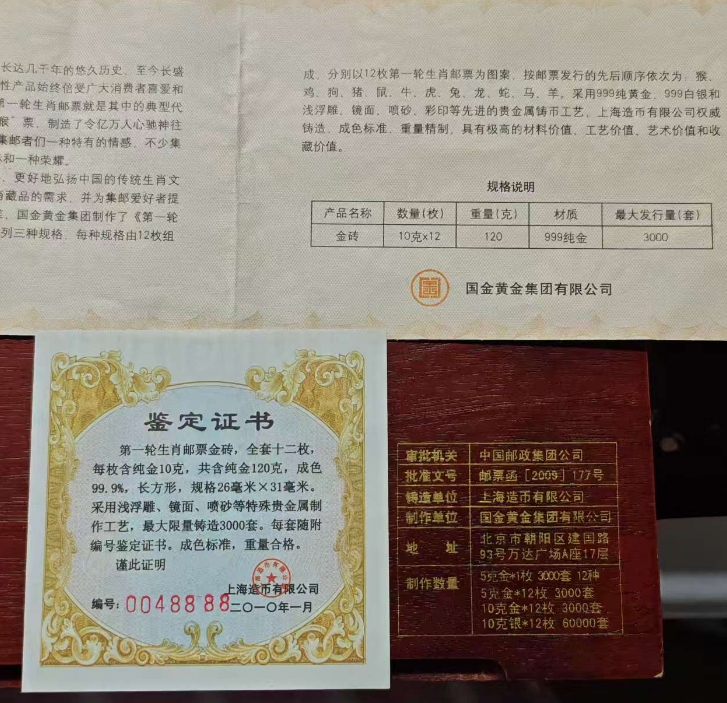 长达几千年的悠久历史，至今长盛
性产品始终倍受广大消费者喜爱和
第一轮生肖邮票就是其中的典型代
猴”票，制造了令亿万人心驰神往
集邮者们一种特有的情感，不少集
和一种荣耀。
、更好地弘扬中国的传统生肖文
藏品的需求，并为集邮爱好者提
国金黄金集团制作了《第一轮
列三种规格，每种规格由12枚组
成，分别以12枚第一轮生肖邮票为图案，按邮票发行的先后顺序依次为：猴、
鸡、狗、猪、鼠、牛、虎、兔、龙、蛇、马、羊。采用999纯黄金、999白银和
浅浮雕、镜面、喷砂、彩印等先进的贵金属铸币工艺，上海造币有限公司权威
铸造，成色标准，重量精制，具有极高的材料价值、工艺价值、艺术价值和收
藏价值。
规格说明
产品名称 数量(枚) 重量(克) 材质 最大发行量(套)
金砖 10克x12 120 999纯金 3000
国金黄金集团有限公司
鉴定证书
第一轮生肖邮票金砖，全套十二枚，
每枚含纯金10克，共含纯金120克，成色
99.9%，长方形，规格26毫米×31毫米。
采用浅浮雕、镜面、喷砂等特殊贵金属制
作工艺，最大限量铸造3000套。每套随附
编号鉴定证书。成色标准，重量合格。
谨此证明
上海造币有限公司
编号：0048888 二〇一〇年一月
审批机关 中国邮政集团公司
批准文号 邮票函［2009］177号
铸造单位 上海造币有限公司
制作单位 国金黄金集团有限公司
地 址 北京市朝阳区建国路
93号万达广场A座17层
制作数量 5克金*1枚 3000套 12种
5克金*12枚 3000套
10克金*12枚 3000套
10克银*12枚 60000套